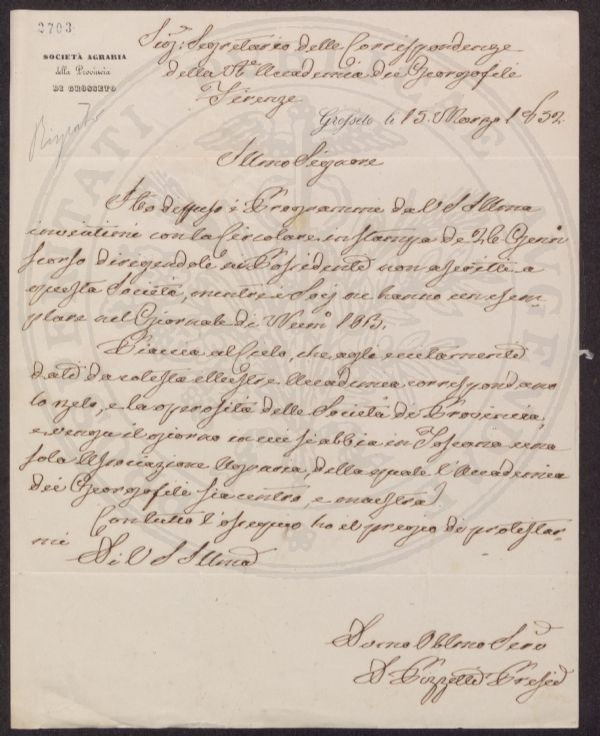 2703
SOCIETÀ AGRARIA
della Provincia
DI GROSSETO
Sig: Segretario delle Corrispondenze
della Accademia dei Georgofili
Firenze
Grosseto li 15. Marzo 185
Illmo Signore
Ho diffuso i Programmi da V S Illma
inviatimi con la Circolare in stampa de 26 Genn
scorso dirigendole ai Possidenti non ascritti a
questa Società, mentre i Socj ne hanno un esem-
plare nel Giornale di Num:
Piaccia al Cielo, che agli eccitamenti
dati da cotesta illustre Accademia corrispondano
lo zelo, e la operosità delle Società di Provincia,
e venga il giorno in cui si abbia in Toscana una
sola Associazione Agraria, della quale l'Accademia
dei Georgofili sia centro, e maestra.
Con tutto l'ossequio ho il pregio di protestar-
mi
Di V S Illma
Obbmo Servo